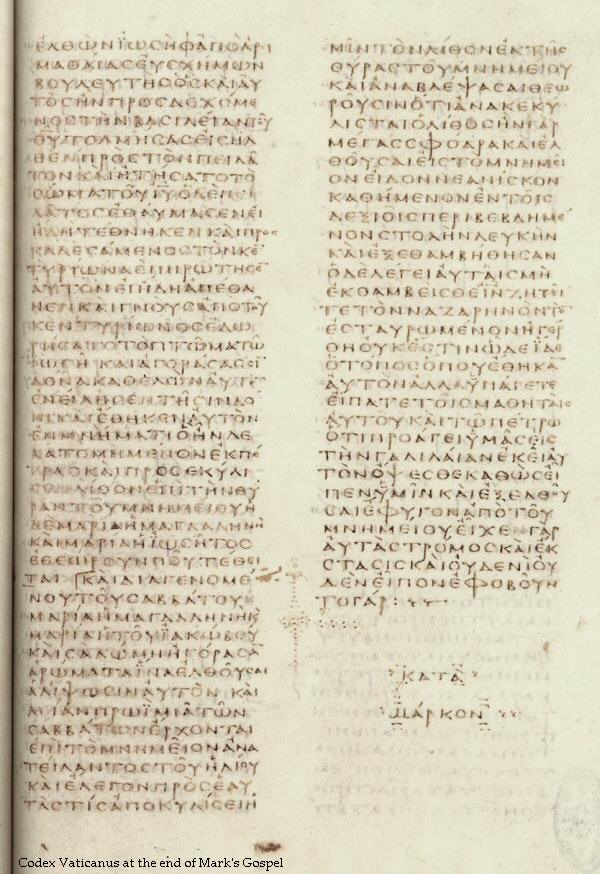 ΕΛΘΩΝΙΩΣΗΦΑΠΟΑΡΙ
ΜΑΘΑΙΑΣΕΥΣΧΗΜΩΝ
ΒΟΥΛΕΥΤΗΣΟΣΚΑΙΑΥ
ΤΟΣΗΝΠΡΟΣΔΕΧΟΜΕ
ΝΟΣΤΗΝΒΑΣΙΛΕΙΑΝΤΟΥ
ΘΥΤΟΛΜΗΣΑΣΕΙΣΗΛ
ΘΕΝΠΡΟΣΤΟΝΠΕΙΛΑ
ΤΟΝΚΑΙΗΤΗΣΑΤΟΤΟ
ΣΩΜΑΤΟΥΙΥΟΔΕΠΕΙ
ΛΑΤΟΣΕΘΑΥΜΑΣΕΝΕΙ
ΗΔΗΤΕΘΝΗΚΕΝΚΑΙΠΡΟΣ
ΚΑΛΕΣΑΜΕΝΟΣΤΟΝΚΕ
ΤΥΡΙΩΝΑΕΠΗΡΩΤΗΣΕ
ΑΥΤΟΝΕΙΗΔΗΑΠΕΘΑ
ΝΕΝΚΑΙΓΝΟΥΣΑΠΟΤΟΥ
ΚΕΝΤΥΡΙΩΝΟΣΕΔΩ
ΡΗΣΑΤΟΤΟΠΤΩΜΑΤΩ
ΙΩΣΗΚΑΙΑΓΟΡΑΣΑΣΣΙ
ΔΟΝΑΚΑΘΕΛΩΝΑΥΤΟ
ΕΝΕΙΛΗΣΕΝΤΗΣΙΝΔΟ
ΝΙΚΑΙΕΘΗΚΕΝΑΥΤΟΝ
ΕΝΜΝΗΜΑΤΙΟΗΝΛΕ
ΛΑΤΟΜΗΜΕΝΟΝΕΚΠΕ
ΤΡΑΣΚΑΙΠΡΟΣΕΚΥΛΙ
ΣΕΝΛΙΘΟΝΕΠΙΤΗΝΘΥ
ΡΑΝΤΟΥΜΝΗΜΕΙΟΥΗ
ΔΕΜΑΡΙΑΗΜΑΓΔΑΛΗΝΗ
ΚΑΙΜΑΡΙΑΗΙΩΣΗΤΟΣ
ΕΘΕΩΡΟΥΝΠΟΥΤΕΘΕΙ
ΤΑΙ ΚΑΙΔΙΑΓΕΝΟΜΕ
ΝΟΥΤΟΥΣΑΒΒΑΤΟΥ
ΜΑΡΙΑΗΜΑΓΔΑΛΗΝΗΚ
ΜΑΡΙΑΗΤΟΥΙΑΚΩΒΟΥ
ΚΑΙΣΑΛΩΜΗΗΓΟΡΑΣΑ
ΑΡΩΜΑΤΑΙΝΑΕΛΘΟΥΣΑΙ
ΑΛΙΨΩΣΙΝΑΥΤΟΝ ΚΑΙ
ΛΙΑΝΠΡΩΙΜΙΑΤΩΝ
ΣΑΒΒΑΤΩΝΕΡΧΟΝΤΑΙ
ΕΠΙΤΟΜΝΗΜΕΙΟΝΑΝΑ
ΤΕΙΛΑΝΤΟΣΤΟΥΗΛΙΟΥ
ΚΑΙΕΛΕΓΟΝΠΡΟΣΕΑΥ
ΤΑΣΤΙΣΑΠΟΚΥΛΙΣΕΙΗ
ΜΙΝΤΟΝΛΙΘΟΝΕΚΤΗΣ
ΘΥΡΑΣΤΟΥΜΝΗΜΕΙΟΥ
ΚΑΙΑΝΑΒΛΕΨΑΣΑΙΘΕΩ
ΡΟΥΣΙΝΟΤΙΑΝΑΚΕΚΥ
ΛΙΣΤΑΙΟΛΙΘΟΣΗΝΓΑΡ
ΜΕΓΑΣΣΦΟΔΡΑΚΑΙΕΛ
ΘΟΥΣΑΙΕΙΣΤΟΜΝΗΜΕΙ
ΟΝΕΙΔΟΝΝΕΑΝΙΣΚΟΝ
ΚΑΘΗΜΕΝΟΝΕΝΤΟΙΣ
ΔΕΞΙΟΙΣΠΕΡΙΒΕΒΛΗΜΕ
ΝΟΝΣΤΟΛΗΝΛΕΥΚΗΝ
ΚΑΙΕΞΕΘΑΜΒΗΘΗΣΑΝ
ΟΔΕΛΕΓΕΙΑΥΤΑΙΣΜΗ
ΕΚΘΑΜΒΕΙΣΘΕΙΝΖΗΤΕΙ
ΤΕΤΟΝΝΑΖΑΡΗΝΟΝΤΟ
ΕΣΤΑΥΡΩΜΕΝΟΝΗΓΕΡ
ΘΗΟΥΚΕΣΤΙΝΩΔΕΙΔΕ
ΟΤΟΠΟΣΟΠΟΥΕΘΗΚΑ
ΑΥΤΟΝΑΛΛΑΥΠΑΓΕΤΕ
ΕΙΠΑΤΕΤΟΙΣΜΑΘΗΤΑΙΣ
ΑΥΤΟΥΚΑΙΤΩΠΕΤΡΩ
ΟΤΙΠΡΟΑΓΕΙΥΜΑΣΕΙΣ
ΤΗΝΓΑΛΙΛΑΙΑΝΕΚΕΙΑΥ
ΤΟΝΟΨΕΣΘΕΚΑΘΩΣΕΙ
ΠΕΝΥΜΙΝΚΑΙΕΞΕΛΘΟΥ
ΣΑΙΕΦΥΓΟΝΑΠΟΤΟΥ
ΜΝΗΜΕΙΟΥΕΙΧΕΝΓΑΡ
ΑΥΤΑΣΤΡΟΜΟΣΚΑΙΕΚ
ΣΤΑΣΙΣΚΑΙΟΥΔΕΝΙΟΥ
ΔΕΝΕΙΠΟΝΕΦΟΒΟΥΝ
ΤΟΓΑΡ:
ΚΑΤΑ
ΜΑΡΚΟΝ
Codex Vaticanus at the end of Mark's Gospel